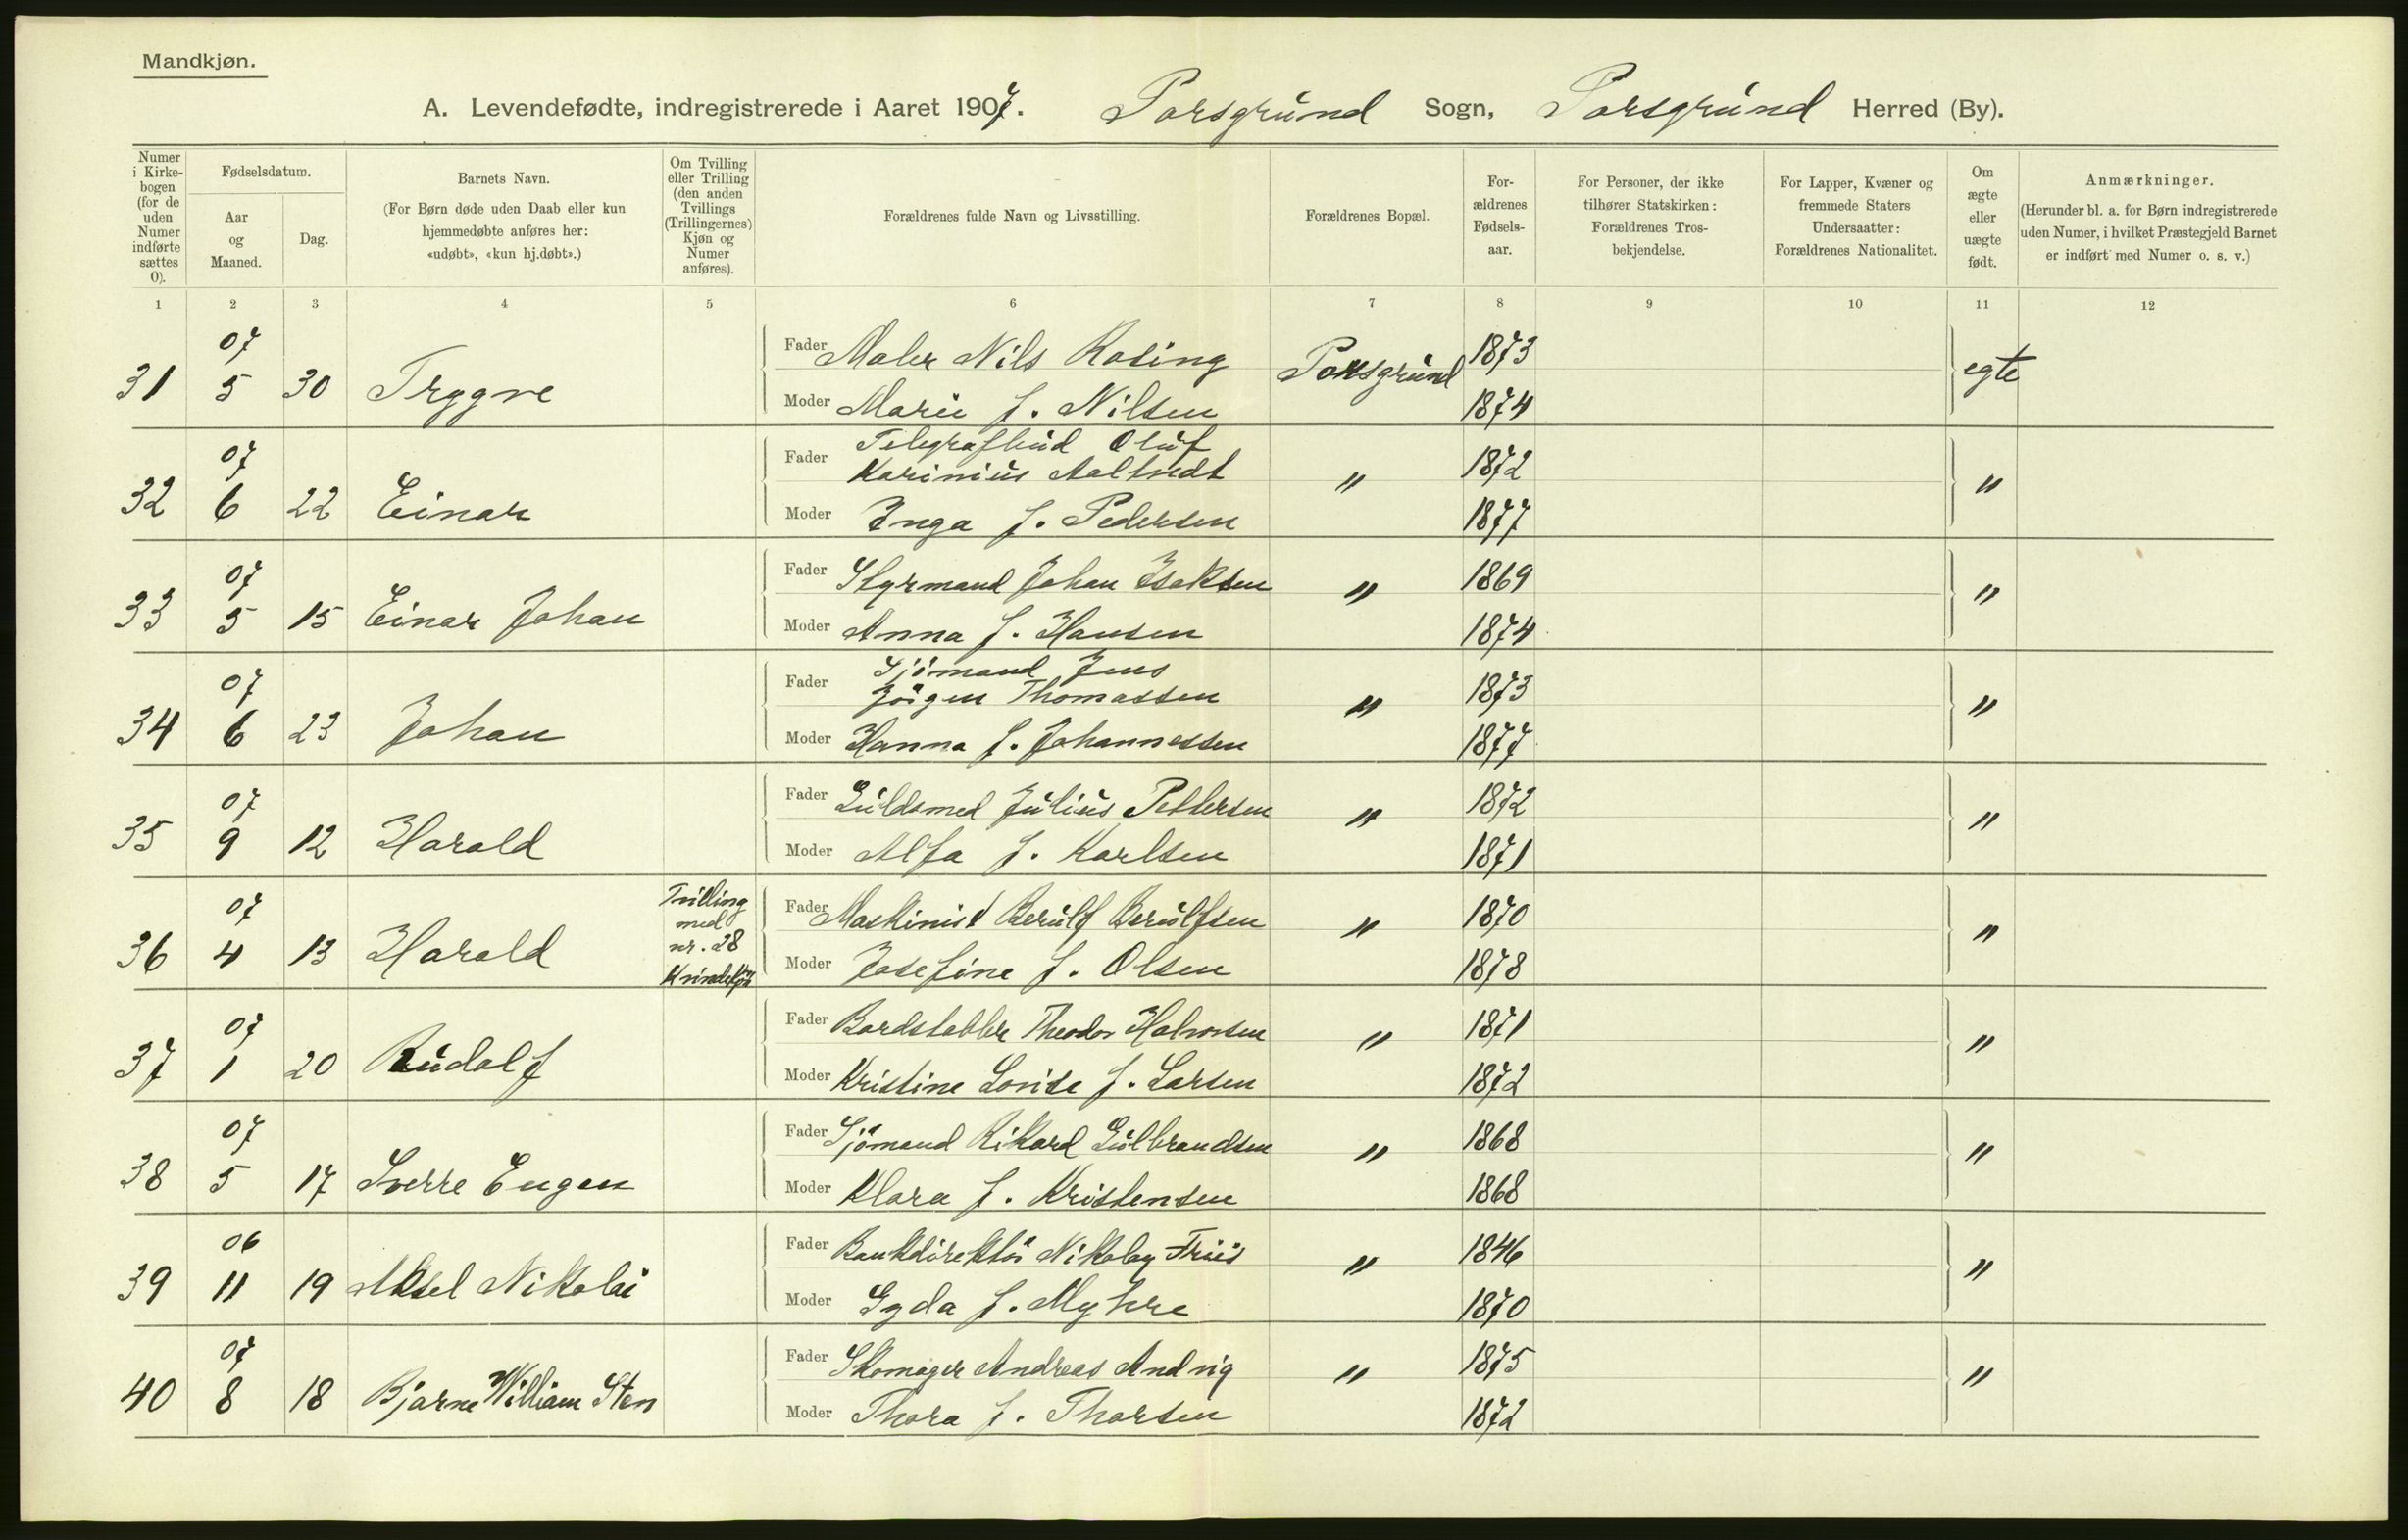 Mandkjøn.
A. Levendefødte, indregistrerede i Aaret 1907. Porsgrund Sogn, Porsgrund Herred (By).
Numer i Kirkebogen (for de uden Numer indførte sættes 0).
Fødselsdatum.
Aar og Maaned.
Dag.
Barnets Navn.
(For Børn døde uden Daab eller kun hjemmedøbte anføres her: «udøbt», «kun hj.døbt».)
Om Tvilling eller Trilling (den anden Tvillings (Trillingernes) Kjøn og Numer anføres).
Forældrenes fulde Navn og Livsstilling.
Forældrenes Bopæl.
Forældrenes Fødselsaar.
For Personer, der ikke tilhører Statskirken: Forældrenes Trosbekjendelse.
For Lapper, Kvæner og fremmede Staters Undersaatter: Forældrenes Nationalitet.
Om ægte eller uægte født.
Anmærkninger.
(Herunder bl. a. for Børn indregistrerede uden Numer, i hvilket Præstegjeld Barnet er indført med Numer o. s. v.)
1 2 3 4 5 6 7 8 9 10 11 12
31 07 5 30 Trygve Fader Maler Nils Rosing Porsgrund 1873 egte
Moder Marie f. Nilsen 1874
32 07 6 22 Einar Fader Telegrafbud Oluf
Karinius Aaltvedt " 1872 "
Moder Inga f. Pedersen 1877
33 07 5 15 Einar Johan Fader Styrmand Johan Isaksen " 1869 "
Moder Anna f. Hansen 1874
34 07 6 23 Johan Fader Sjömand Jens
Jörgen Thomassen " 1873 "
Moder Hanna f. Johannessen 1877
35 07 9 12 Harald Fader Guldsmed Julius Pettersen " 1872 "
Moder Alfa f. Karlsen 1871
36 07 4 13 Harald Tvilling
med
nr. 28
Kvindekjön Fader Maskinist Berulf Berulfsen " 1870 "
Moder Josefine f. Olsen 1878
37 07 1 20 Rudolf Fader Bordstabler Theodor Halvorsen " 1871 "
Moder Kristine Lovise f. Larsen 1872
38 07 5 17 Sverre Eugen Fader Sjömand Rikard Gulbrandsen " 1868 "
Moder Klara f. Kristensen 1868
39 06 11 19 Aksel Nikolai Fader Bankdirektör Nikolay Friis " 1846 "
Moder Gyda f. Myhre 1870
40 07 8 18 Bjarne William Sten Fader Skomager Andreas Andvig " 1875 "
Moder Thora f. Thorsen 1872